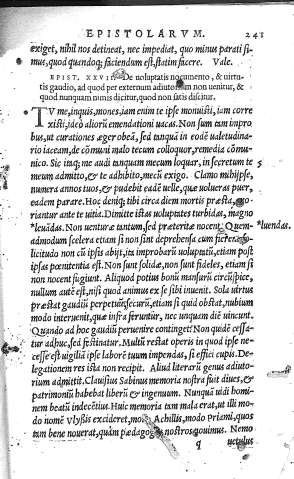 EPISTOLARVM. 241
exiget, nihil nos detineat, nec impediat, quo minus parati si-
mus, quod quandoq; faciendum est, statim facere. Vale.
EPIST. XXVII. De uoluptatis nocumento, & uirtu-
tis gaudio, ad quod per externum adiutorium non uenitur, &
quod nunquam nimis dicitur, quod non satis discitur.
TV me, inquis, mones, iam enim te ipse monuisti, iam corre
xisti, ideo aliorũ emendationi uacas. Non sum tam impro
bus, ut curationes æger obeã, sed tanquã in eodẽ ualetudina-
rio iaceam, de cõmuni malo tecum colloquor, remedia cõmu-
nico. Sic itaq; me audi tanquam mecum loquar, in secretum te
meum admitto, & te adhibito, mecũ exigo. Clamo mihijpse,
numera annos tuos, & pudebit eadẽ uelle, quæ uolueras puer,
eadem parare. Hoc deniq; tibi circa diem mortis præsta, mo-
riantur ante te uitia. Dimitte istas uoluptates turbidas, magno
*leuãdas. Non uenturæ tantum, sed præteritæ nocent. Quem- *luendas.
admodum scelera etiam si non sint deprehensa cum fierent, so-
licitudo non cũ ipsis abijt, ita improbarũ uoluptatũ, etiam post
ipsas pœnitentia est. Non sunt solidæ, non sunt fideles, etiam si
non nocent fugiunt. Aliquod potius bonũ mansurũ circũspice,
nullum autẽ est, nisi quod animus ex se sibi inuenit. Sola uirtus
præstat gaudiũ perpetuũ, securũ, etiam si quid obstat, nubium
modo interuenit, quæ infra feruntur, nec unquam diẽ uincunt.
Quando ad hoc gaudiũ peruenire continget? Non quidẽ cessa-
tur adhuc, sed festinatur. Multũ restat operis in quod ipse ne-
cesse est uigiliã ipse laborẽ tuum impendas, si effici cupis. De-
legationem res ista non recipit. Aliud literarũ genus adiuto-
rium admittit. Claluisius Sabinus memoria nostra fuit diues, &
patrimoniũ habebat liberti & ingenium. Nunquã uidi homi-
nem beatũ indecẽtius. Huic memoria tam mala erat, ut illi mo-
do nomẽ Vlyssis excideret, modo Achillis, modo Priami, quos
tam bene nouerat, quàm pædagogos nostros nouimus. Nemo
q uetulus